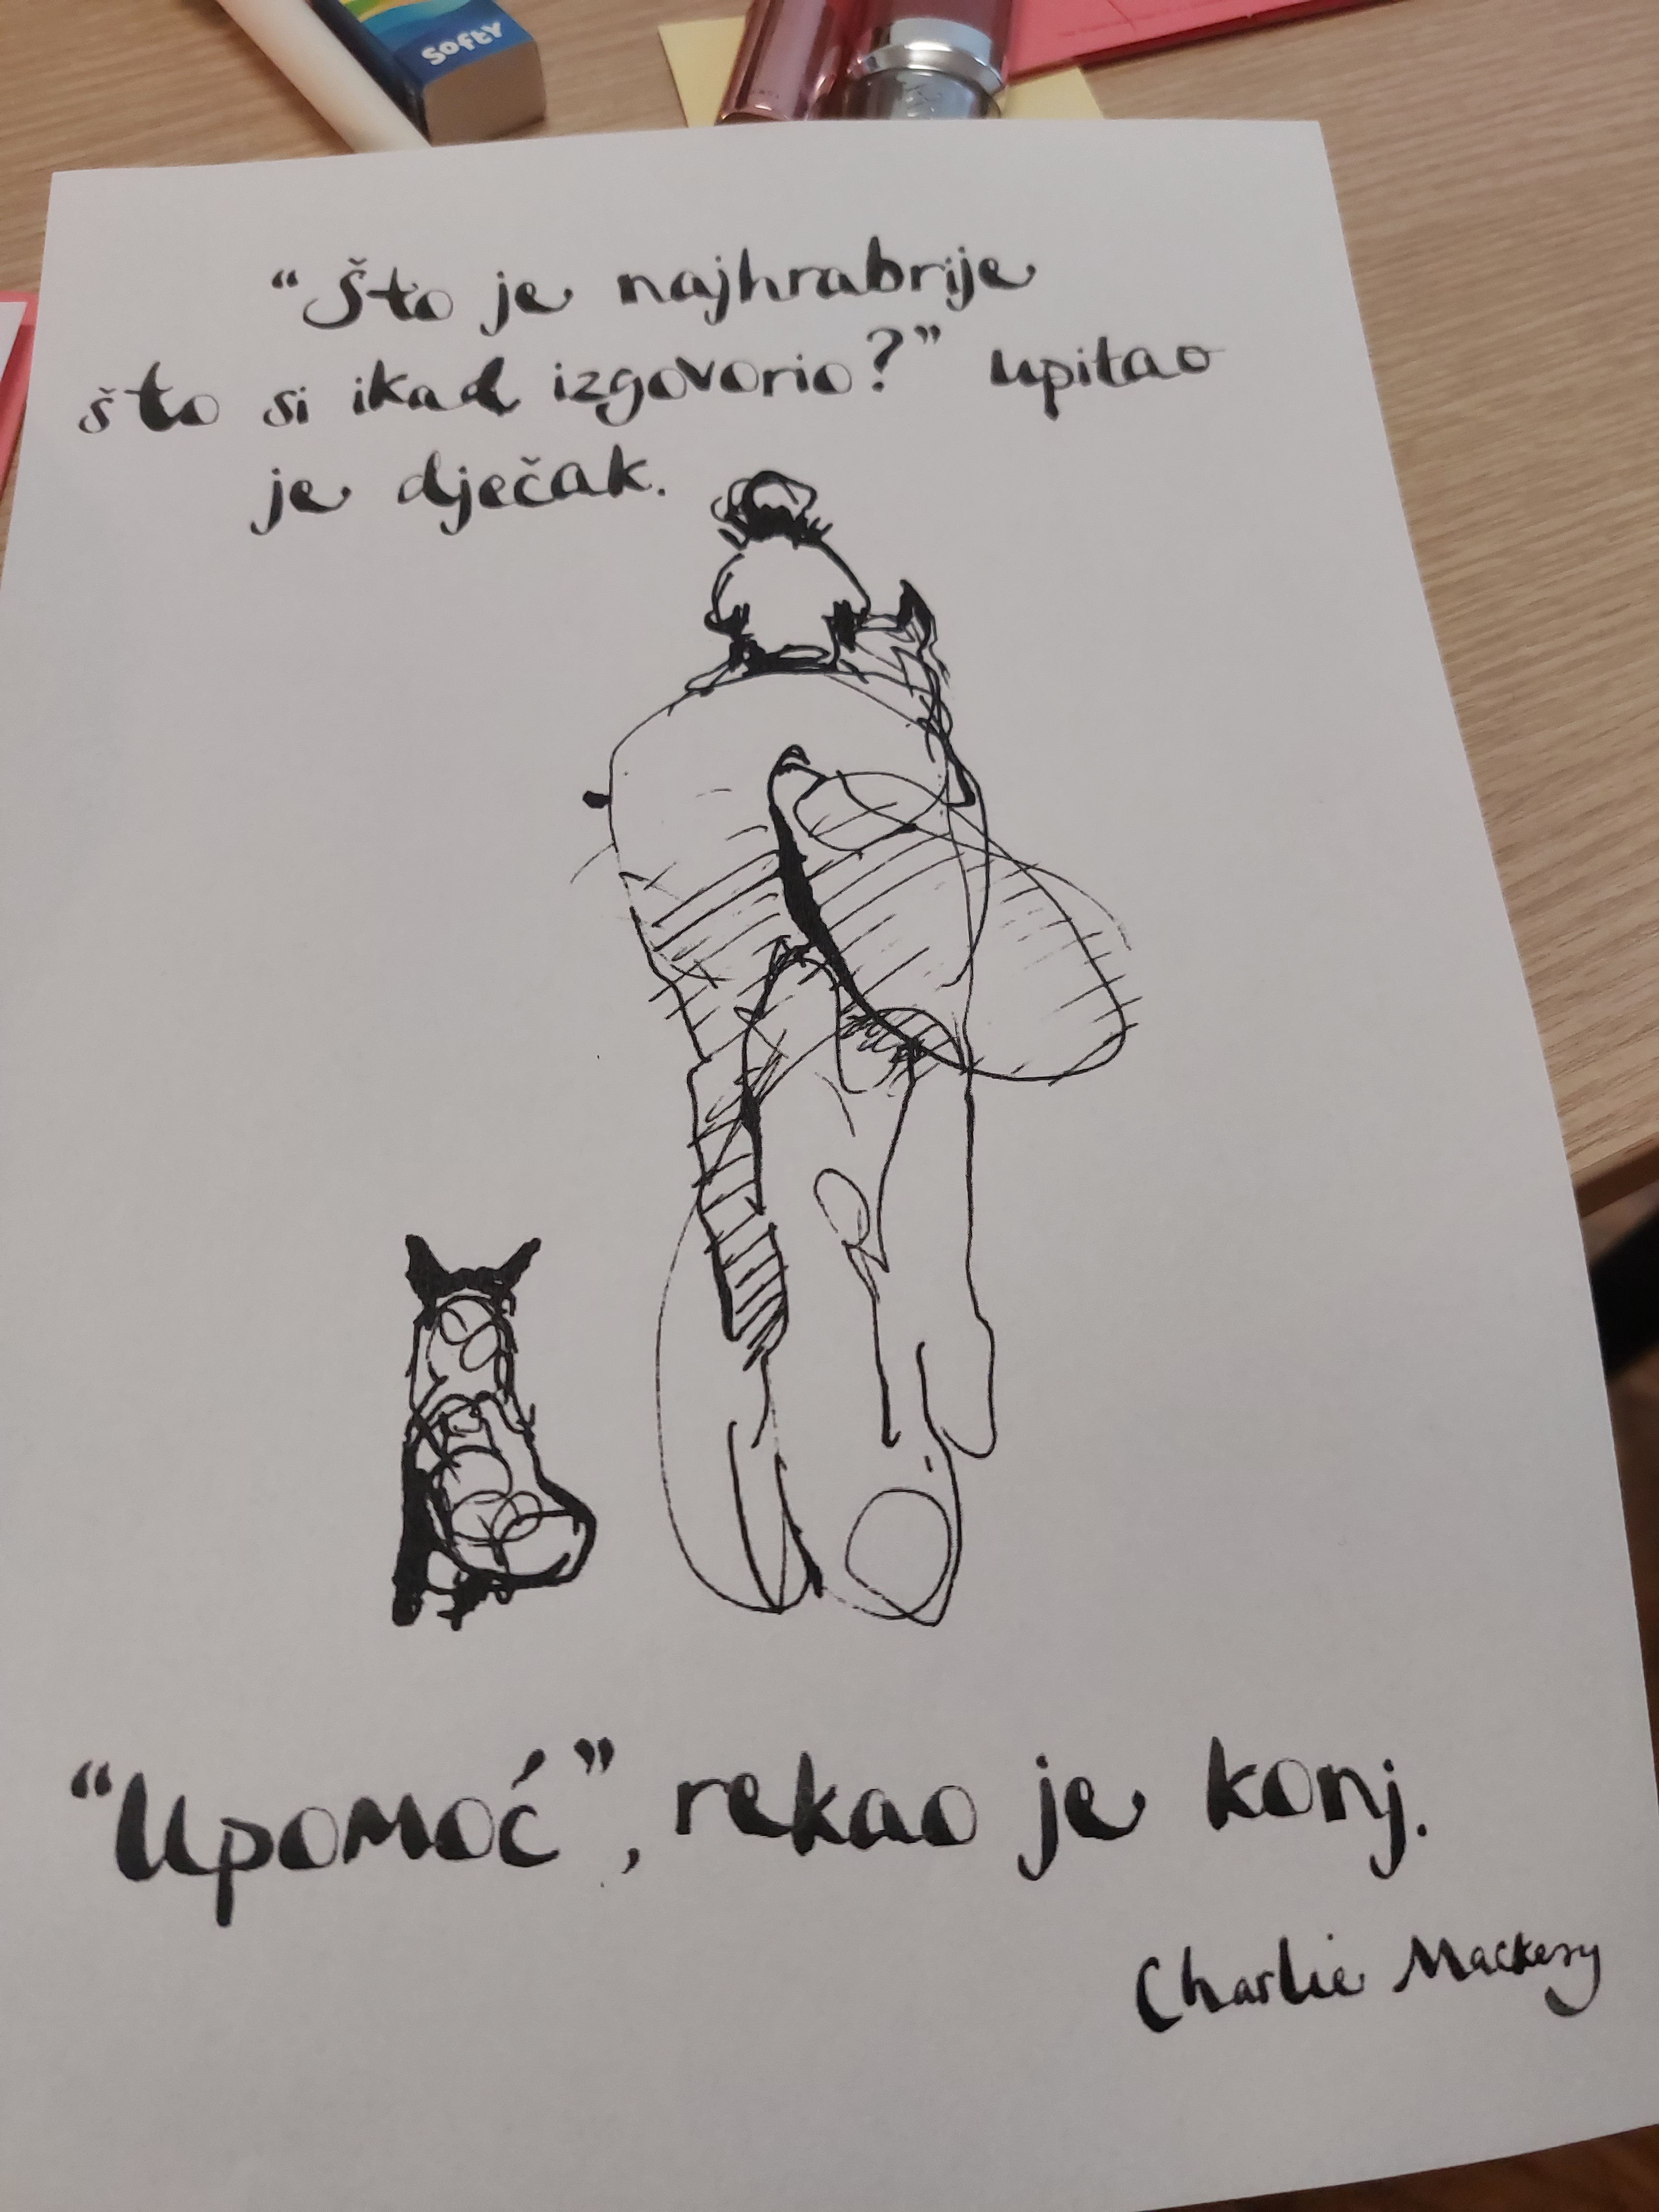 Softy
“Što je najhrabrije
što si ikad izgovorio?” upitao
je dječak.
“Upomoć”, rekao je konj.
Charlie Mackesy